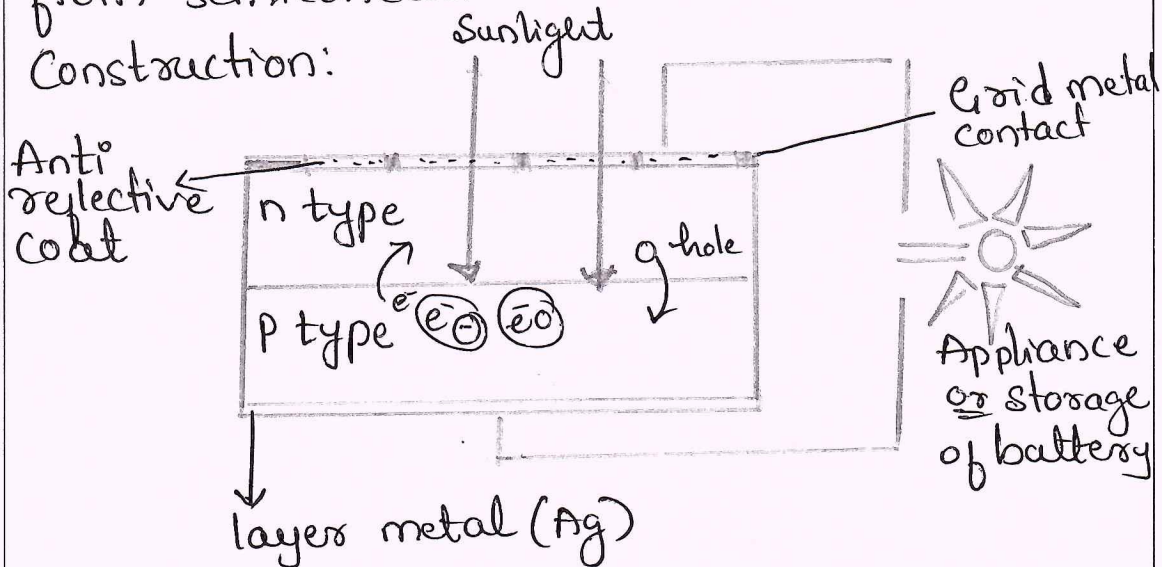 from
Construction:
Sunlight
Grid metal
contact
Anti
reflective
coat
n type
hole
e⁻
e⁻ ⊖
ēo
P type
Appliance
or storage
of battery
layer metal (Ag)